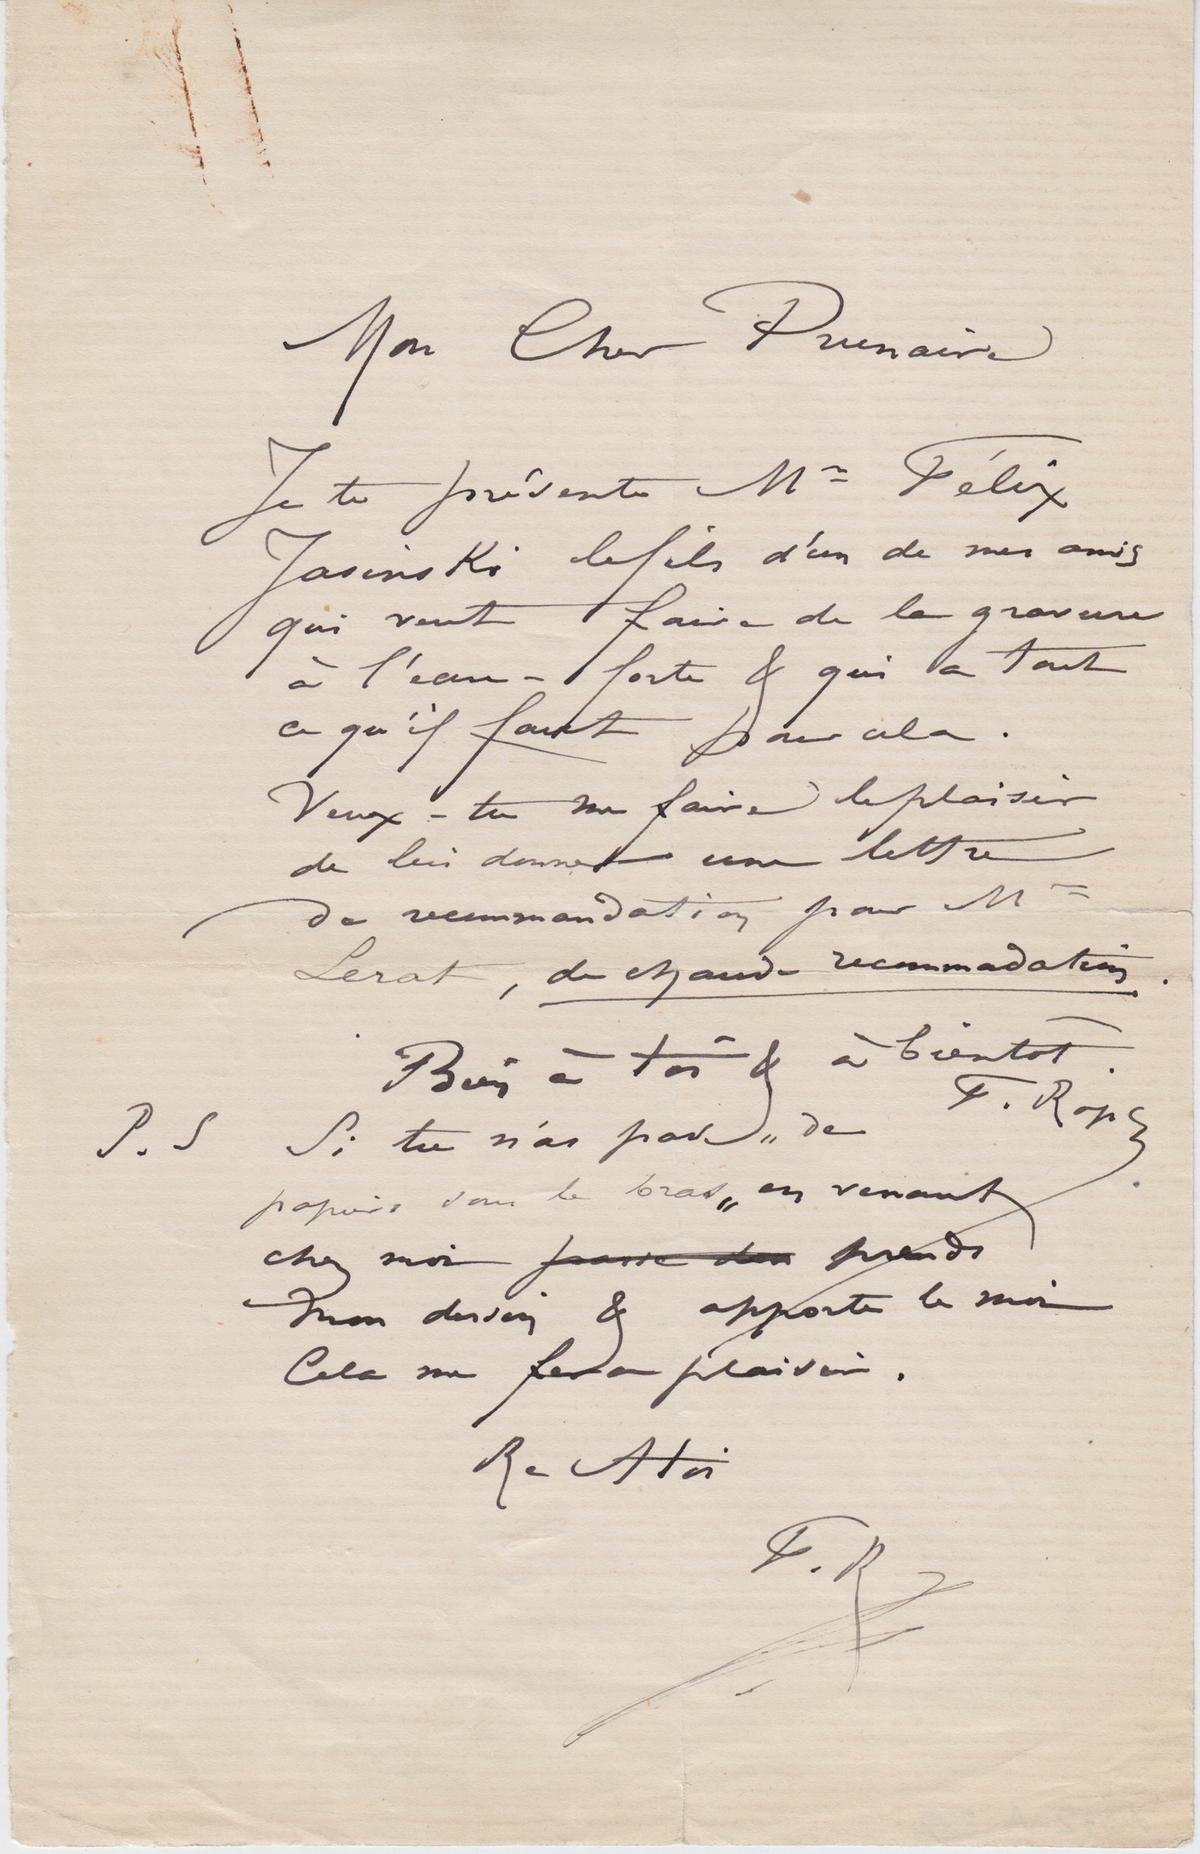 Mon Cher Prunaire
Je te présente Mr Félix
Jasinski le fils d'un de mes amis
qui veut faire de la gravure
à l'eau-forte & qui a tout
ce qu'il faut pour cela.
Veux-tu me faire le plaisir
de lui donner une lettre
de recommandation pour Mr
Lerat, de chaude recommadation.
Bien à toi & à bientôt.
F. Rops
P.S Si tu n'as pas „ de
papiers sous le bras „ en venant
chez moi passe des prends
mon dessin & apporte le moi
Cela me fera plaisir.
Re A toi
F. R